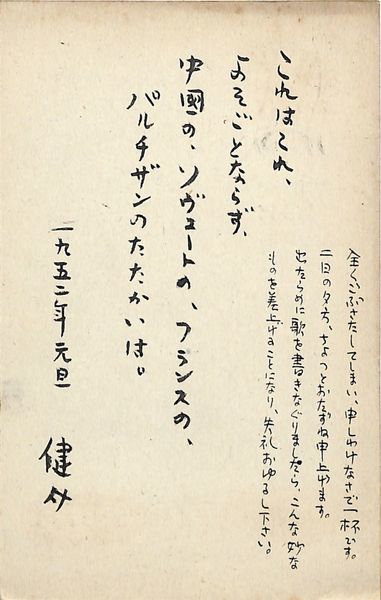 全くごぶさたしてしまい、申しわけなさで一杯です。
二日の夕方、ちょっとおたずね申上げます。
出たらめに歌を書きなぐりましたら、こんな妙な
ものを差上げることになり、失礼おゆるし下さい。
これはこれ、
よそごとならず、
中國の、ソヴェートの、フランスの、
パルチザンのたたかいは。
一九五二年元旦
健